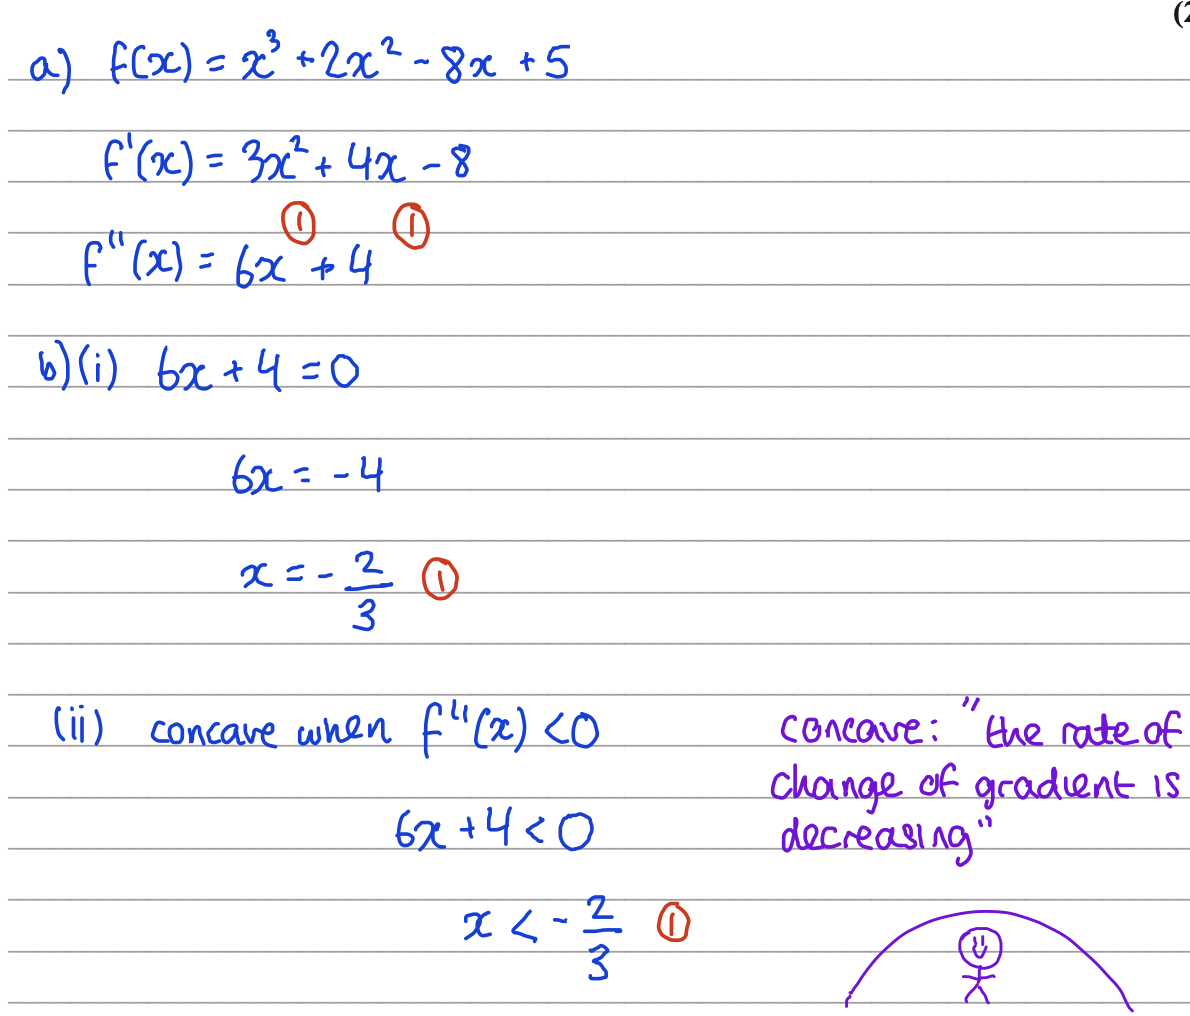 (2
a) f(x) = x³ + 2x² - 8x + 5
f'(x) = 3x² + 4x - 8
① ①
f''(x) = 6x + 4
b)(i) 6x + 4 = 0
6x = -4
x = -2/3 ①
(ii) concave when f''(x) < 0
6x + 4 < 0
x < -2/3 ①
concave: "the rate of
change of gradient is
decreasing"